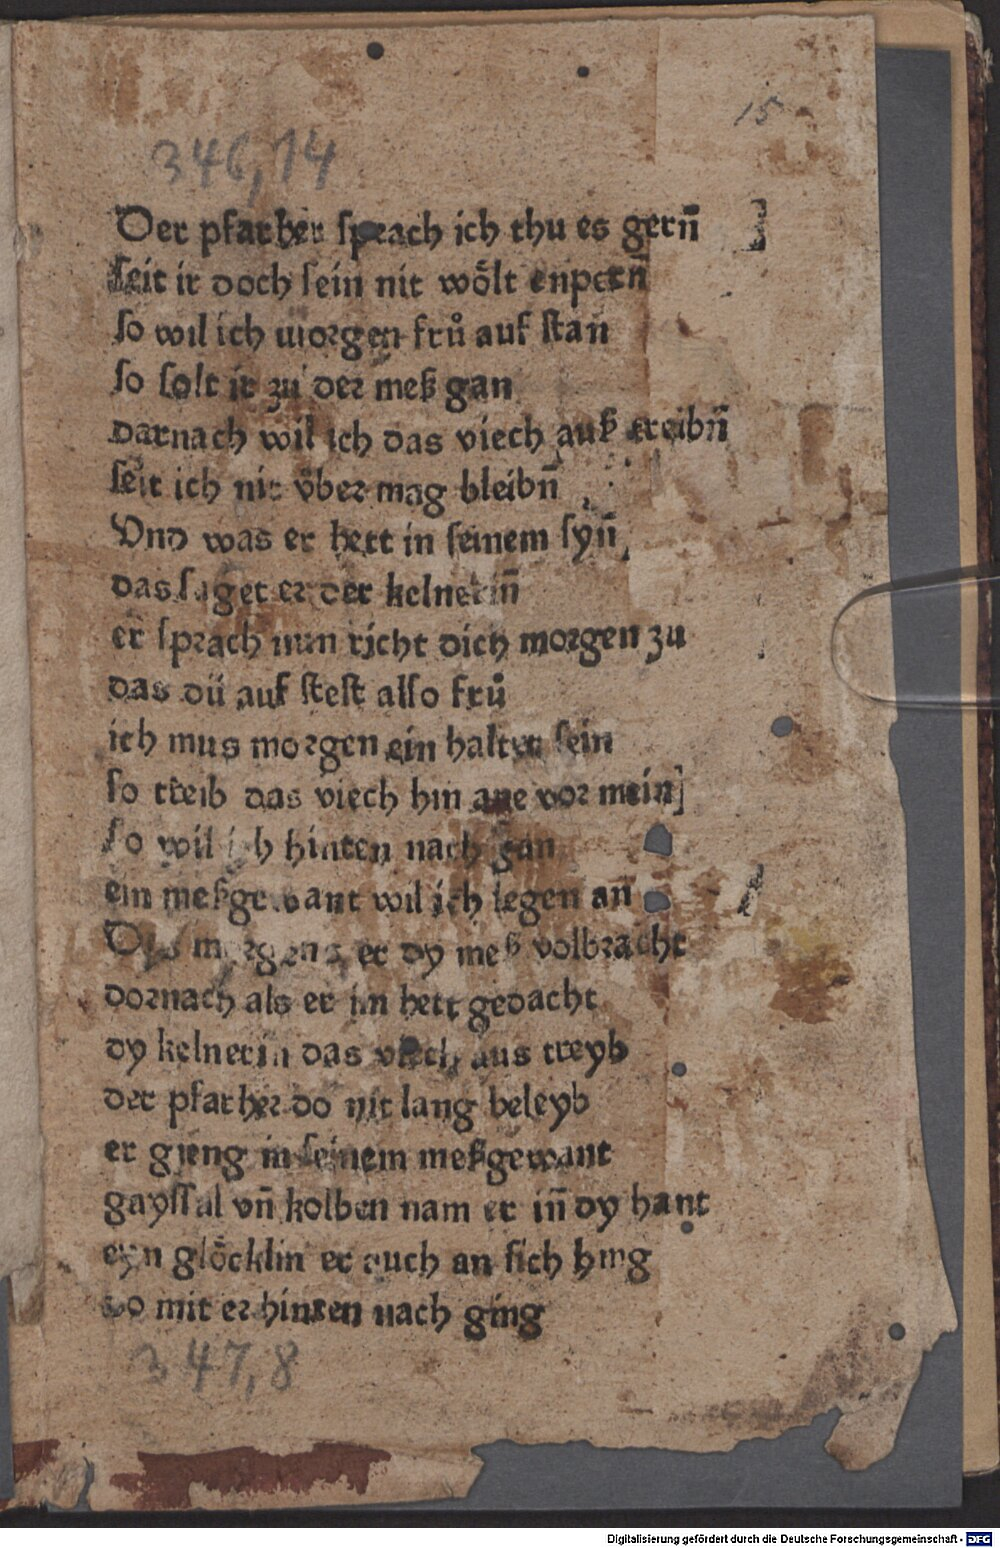 15
346,14
Der pfarher sprach ich thu es gern̄
seit ir doch sein nit wölt enpern̄
so wil ich morgen frů auf stan
so solt ir zu der meß gan
darnach wil ich das viech auß treibn̄
seit ich nit vber mag bleibn̄
Vnd was er hett in seinem syn̄
das saget er der kelnerin̄
er sprach nun richt dich morgen zu
das dü auf stest also frů
ich mus morgen ein halter sein
so treib das viech hin ane vor mein]
so wil ich hinten nach gan
ein meßgewant wil ich legen an
Des morgens er dy meß volbracht
dornach als er im hett gedacht
dy kelnerin das viech aus treyb
der pfarher do nit lang beleyb
er gieng in seinem meßgewant
gayssal vn̄ kolben nam er in̄ dy hant
eyn glöcklin er auch an sich hing
do mit er hinten nach ging
347,8
Digitalisierung gefördert durch die Deutsche Forschungsgemeinschaft - DFG